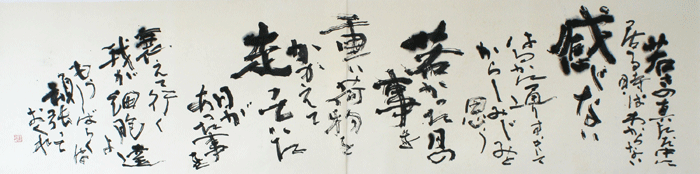 若さの真只中に
居る時はわからない
感じない
はるかに通りすぎて
からしみじみと
思う
若かった
事を
重い荷物を
かかえて
走っていた
日が
あった事を
衰えて行く
我が細胞達
よ
もうしばらくは
頑張って
おくれ